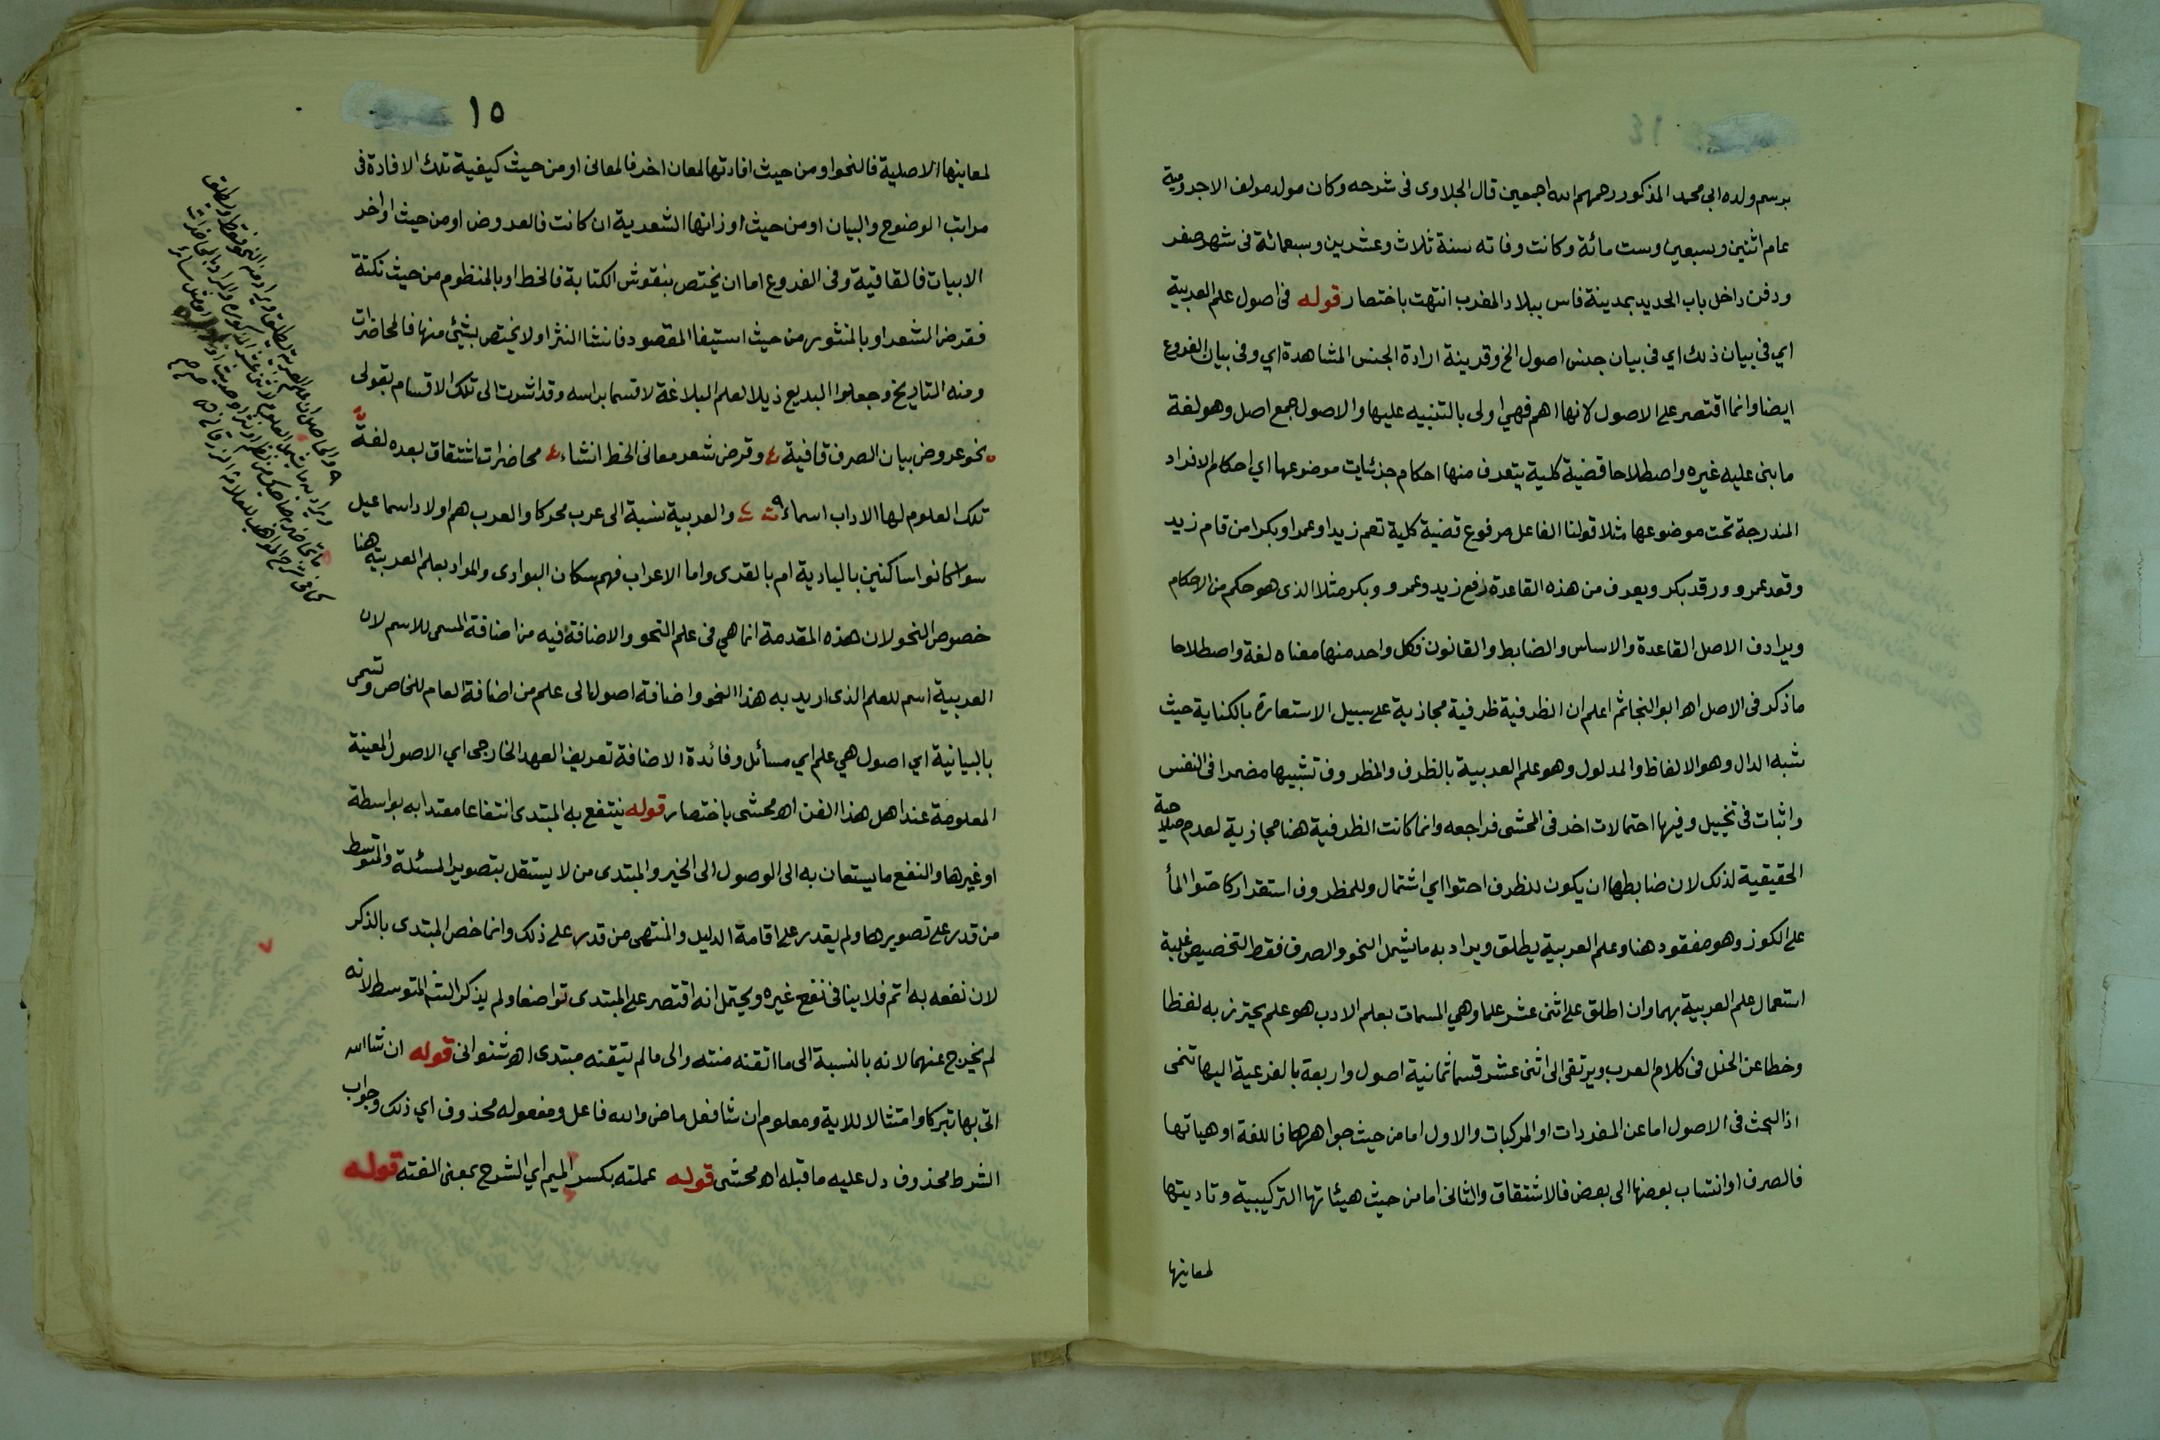 برسم ولده ابي محمد المذكور رحمهم الله اجمعين قال الجلاوى فى شرحه وكان مولد مولف الاجرومية
عام اثنين وسبعين وست مائة وكانت وفاته سنة ثلاث وعشرين وسبعمائة فى شهر صفر
ودفن داخل باب الحديد بمدينة فاس ببلاد المغرب انتهت باختصار قوله فى اصول علم العربية
اي فى بيان ذلك اي فى بيان جنس اصول الخ وقرينة ارادة الجنس المشاهدة اي وفى بيان الفروع
ايضا وانما اقتصر على الاصول لانها اهم فهي اولى بالتنبيه عليها والاصول جمع اصل وهو لغة
ما بنى عليه غيره واصطلاحا قضية كلية يتعرف منها احكام جزئيات موضوعها اي احكام الافراد
المندرجة تحت موضوعها مثلا قولنا الفاعل مرفوع قضية كلية تعم زيدا وعمرا وبكرا من قام زيد
وقعد عمرو ورقد بكر ويعرف من هذه القاعدة رفع زيد وعمرو وبكر مثلا الذى هو حكم من الاحكام
ويرادف الاصل القاعدة والاساس والضابط والقانون فكل واحد منها معناه لغة واصطلاحا
ما ذكر فى الاصل اه ابو النجا ثم اعلم ان الظرفية ظرفية مجازية على سبيل الاستعارة بالكناية حيث
شبه الدال وهو الالفاظ والمدلول وهو علم العربية بالظرف والمظروف تشبيها مضمرا فى النفس
واثبات فى تخييل وفيها احتمالات اخر فى المحشى فراجعه وانما كانت الظرفية هنا مجازية لعدم صلاحية
الحقيقية لذلك لان ضابطها ان يكون للظرف احتوا اي اشتمال وللمظروف استقرار كاحتوا الماٴ
على الكوز وهو مفقود هنا وعلم العربية يطلق ويراد به ما يشمل النحو والصرف فقط لتخصيص غلبة
استعمال علم العربية بهما وان اطلق على اثنى عشر علما وهي المسمات بعلم الادب هو علم يحترز به لفظا
وخطا عن الخلل فى كلام العرب ويرتقى الى اثنى عشر قسما ثمانية اصول واربعة بالفرعية اليها تنمى
اذ البحث فى الاصول اما عن المفردات او المركبات والاول اما من حيث جواهرها فاللغة او هياتها
فالصرف او انتساب بعضها الى بعض فالاشتقاق والثانى اما من حيث هيئاتها التركيبية وتاديتها
لمعانيها
١٥
لمعانيها الاصلية فالنحو او من حيث افادتها لمعان اخر فالمعانى او من حيث كيفية تلك الافادة فى
مراتب الوضوح والبيان او من حيث اوزانها الشعرية ان كانت فالعروض او من حيث اواخر
الابيات فالقافية وفى الفروع اما ان يختص بنقوش الكتابة فالخط او بالمنظوم من حيث نكتة
فقرض الشعر او بالمنثور من حيث استيفا المقصود فانشا النثر او لا يختص بشيئ منها فالمحاضرات
ومنه التاريخ وجعلوا البديع ذيلا لعلم البلاغة لا قسما براسه وقد اشرت الى تلك الاقسام بقولى
نحو عروض بيان الصرف قافية وقرض شعر معانى الخط انشاء محاضرات اشتقاق بعده لغة
تلك العلوم لها الاداب اسماء والعربية نسبة الى عرب محركا والعرب هم اولاد اسماعيل
سوا كانوا ساكنين بالبادية ام بالقرى واما الاعراب فهم سكان البوادى والمراد بعلم العربية هنا
خصوص النحو لان هذه المقدمة انما هي فى علم النحو والاضافة فيه من اضافة المسمى للاسم لان
العربية اسم للعلم الذى اريد به هذا النحو واضافة اصول الى علم من اضافة العام للخاص وتسمى
بالبيانية اي اصول هي علم اي مسائل وفائدة الاضافة تعريف العهد الخارجى اي الاصول المعينة
المعلومة عند اهل هذا الفن اه محشى باختصار قوله ينتفع به المبتدى انتفاعا معتدا به بواسطة
او غيرها والنفع ما يستعان به الى الوصول الى الخير والمبتدى من لا يستقل بتصوير المسئلة والمتوسط
من قدر على تصويرها ولم يقدر على اقامة الدليل والمنتهى من قدر على ذلك وانما خص المبتدى بالذكر
لان نفعه به اتم فلا ينافى نفع غيره ويحتمل انه اقتصر على المبتدى تواضعا ولم يذكر المتوسط لانه
لم يخرج عنهما لانه بالنسبة الى ما اتقنه منته والى ما لم يتقنه مبتدى اه شنوانى قوله ان شا الله
اتى بها تبركا وامتثالا للاية ومعلوم ان شا فعل ماض والله فاعل ومفعوله محذوف اي ذلك وجواب
الشرط محذوف دل عليه ما قبله اه محشى قوله عملته بكسر الميم اي الشرح بمعنى الفته قوله